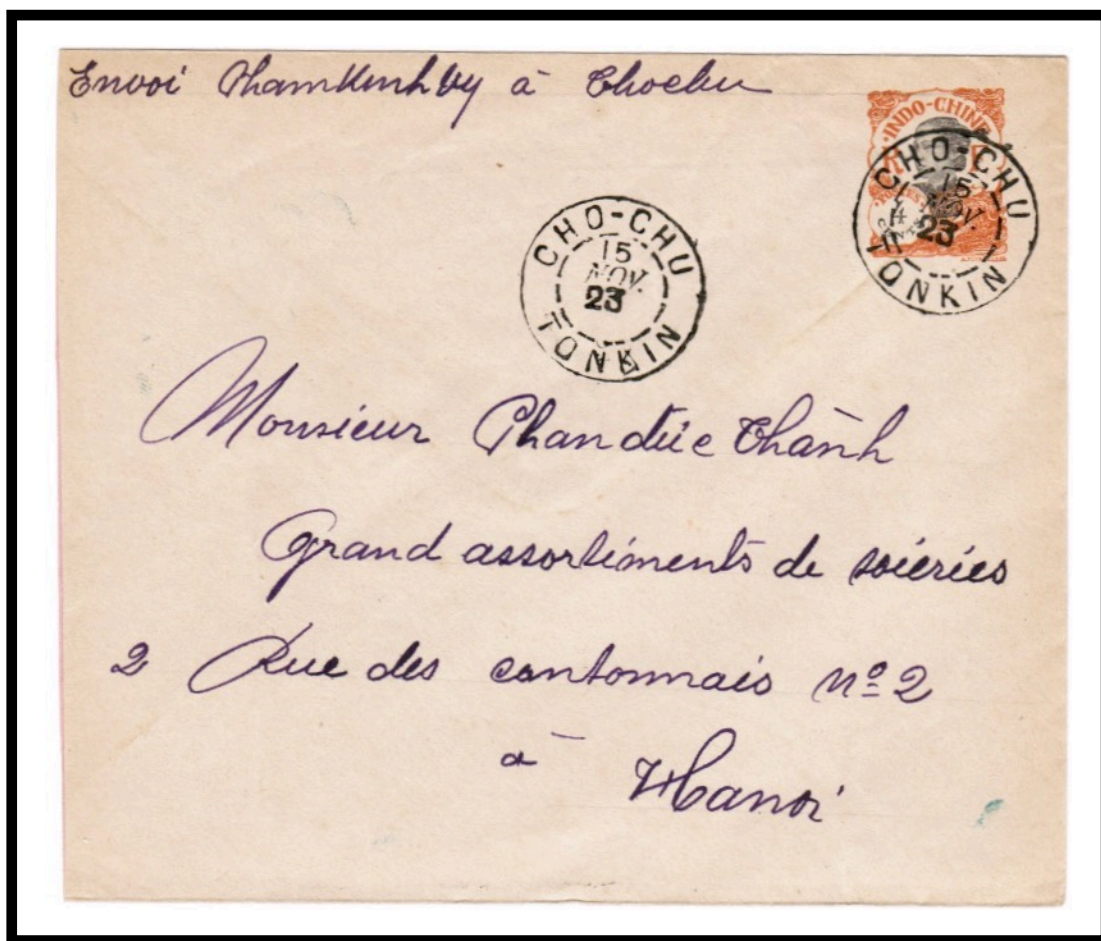 Envoi Phamkinhky à Chochu
INDO-CHINE
R F
CHO-CHU
15
NOV.
23
TONKIN
CHO-CHU
15
NOV.
23
TONKIN
Monsieur Phan đức Thành
Grand assortiments de soieries
2 Rue des cantonnais nº 2
à
Hanoi